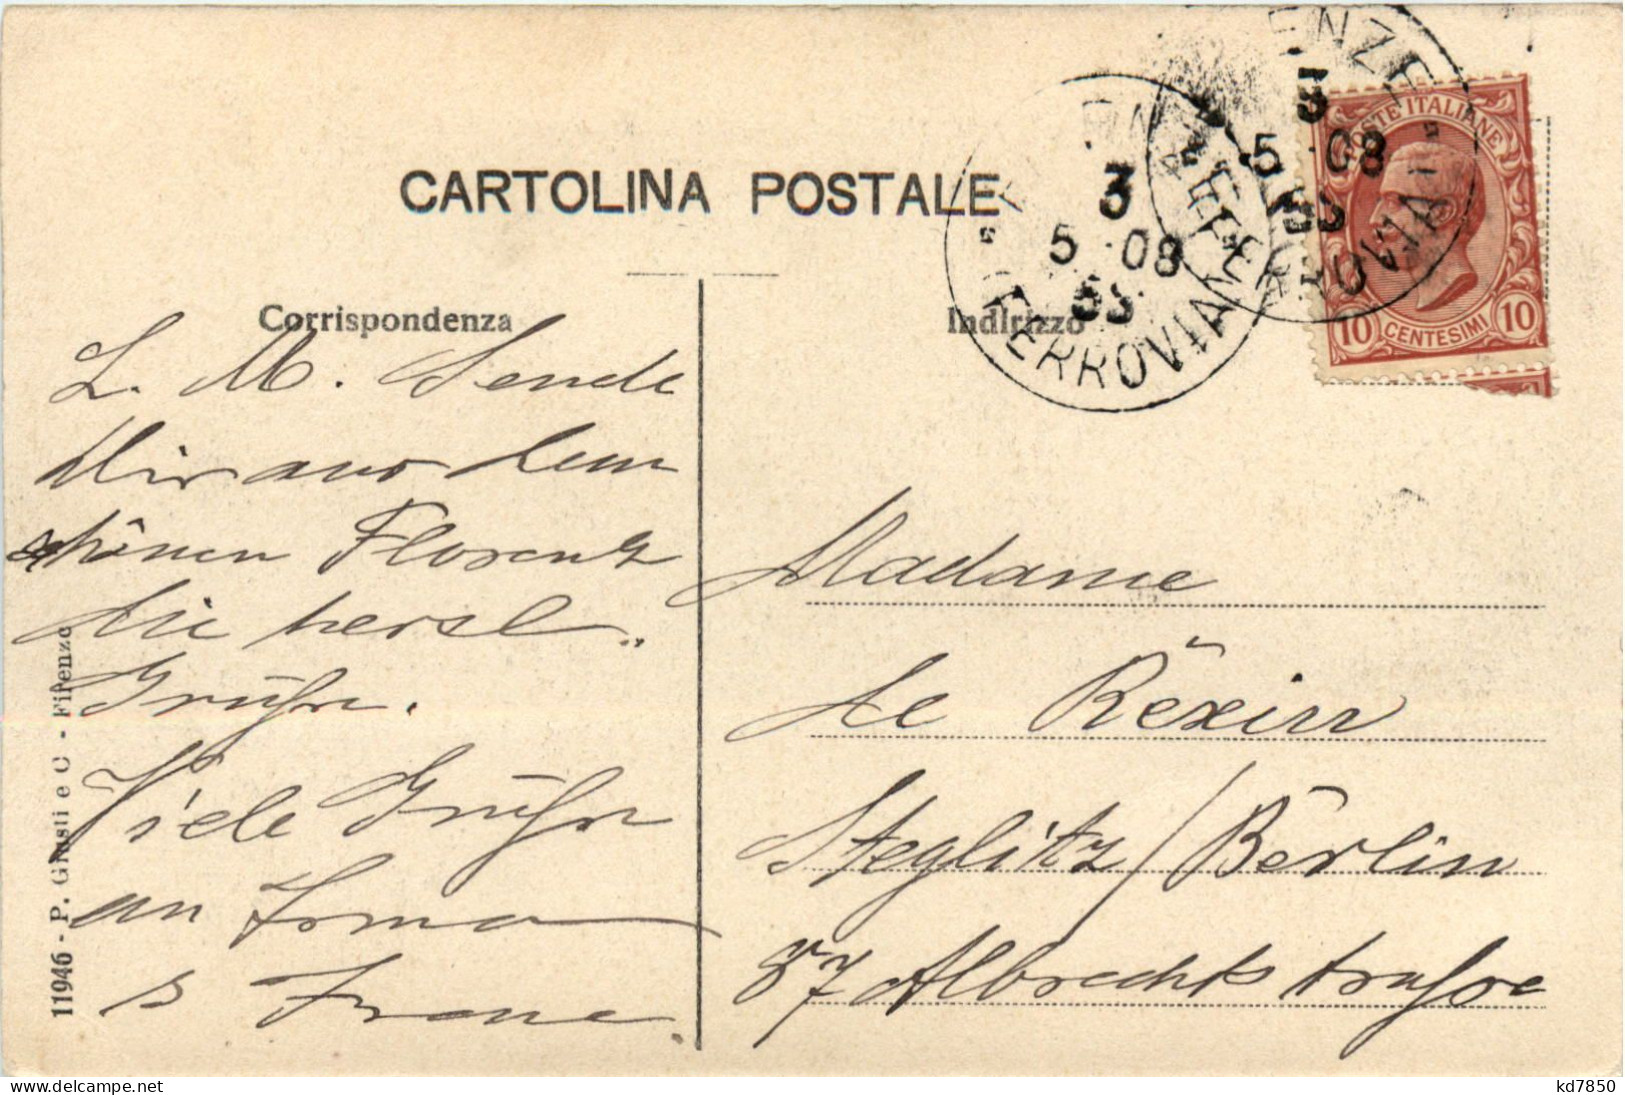 CARTOLINA POSTALE
Corrispondenza
Indirizzo
L. M. Sende
Dir aus dem
schönen Florenz
die herzl.
Grüße.
Viele Grüße
an Irma
Madame
de Rëxin
Steglitz/Berlin
87 Albrechtstraße
11946 - P. Giusti e C - Firenze
POSTE ITALIANE
10 CENTESIMI 10
3
5 08
FERROVIA
3
5 08
FERROVIA
kd7850